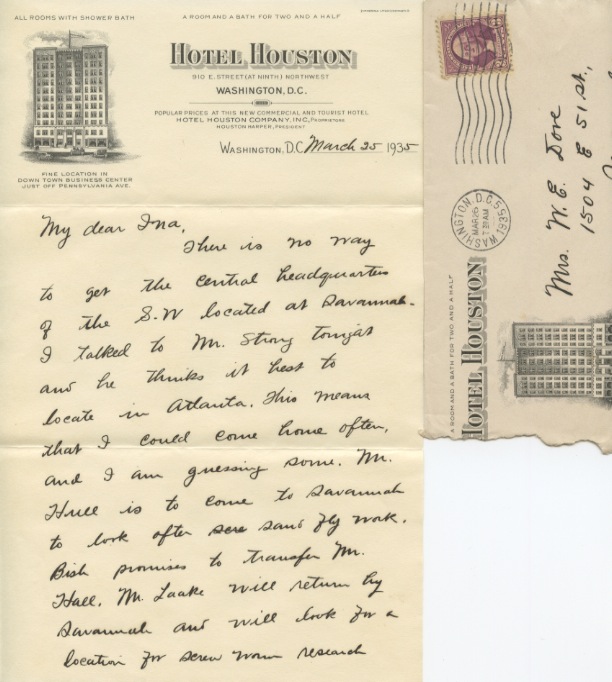 ALL ROOMS WITH SHOWER BATH
A ROOM AND A BATH FOR TWO AND A HALF
HOTEL HOUSTON
910 E. STREET (AT NINTH) NORTHWEST
WASHINGTON, D.C.
POPULAR PRICES AT THIS NEW COMMERCIAL AND TOURIST HOTEL
HOTEL HOUSTON COMPANY, INC., PROPRIETORS
HOUSTON HARPER, PRESIDENT
FINE LOCATION IN
DOWN TOWN BUSINESS CENTER
JUST OFF PENNSYLVANIA AVE.
WASHINGTON, D.C. March 25 1935
My dear Ina,
There is no way
to get the central headquarters
of the S.W located at Savannah.
I talked to Mr. Strong tonight
and he thinks it best to
locate in Atlanta. This means
that I could come home often,
and I am guessing some. Mr.
Hull is to come to Savannah
to look after sand fly work.
Bish promises to transfer Mr.
Hall. Mr. Laake will return by
Savannah and will look for a
location for screw worm research
WASHINGTON, D.C. 5
MAR 26
7 30 AM
1935
Mrs. W. E. Dove
1504 E 51 St.,
A ROOM AND A BATH FOR TWO AND A HALF
HOTEL HOUSTON